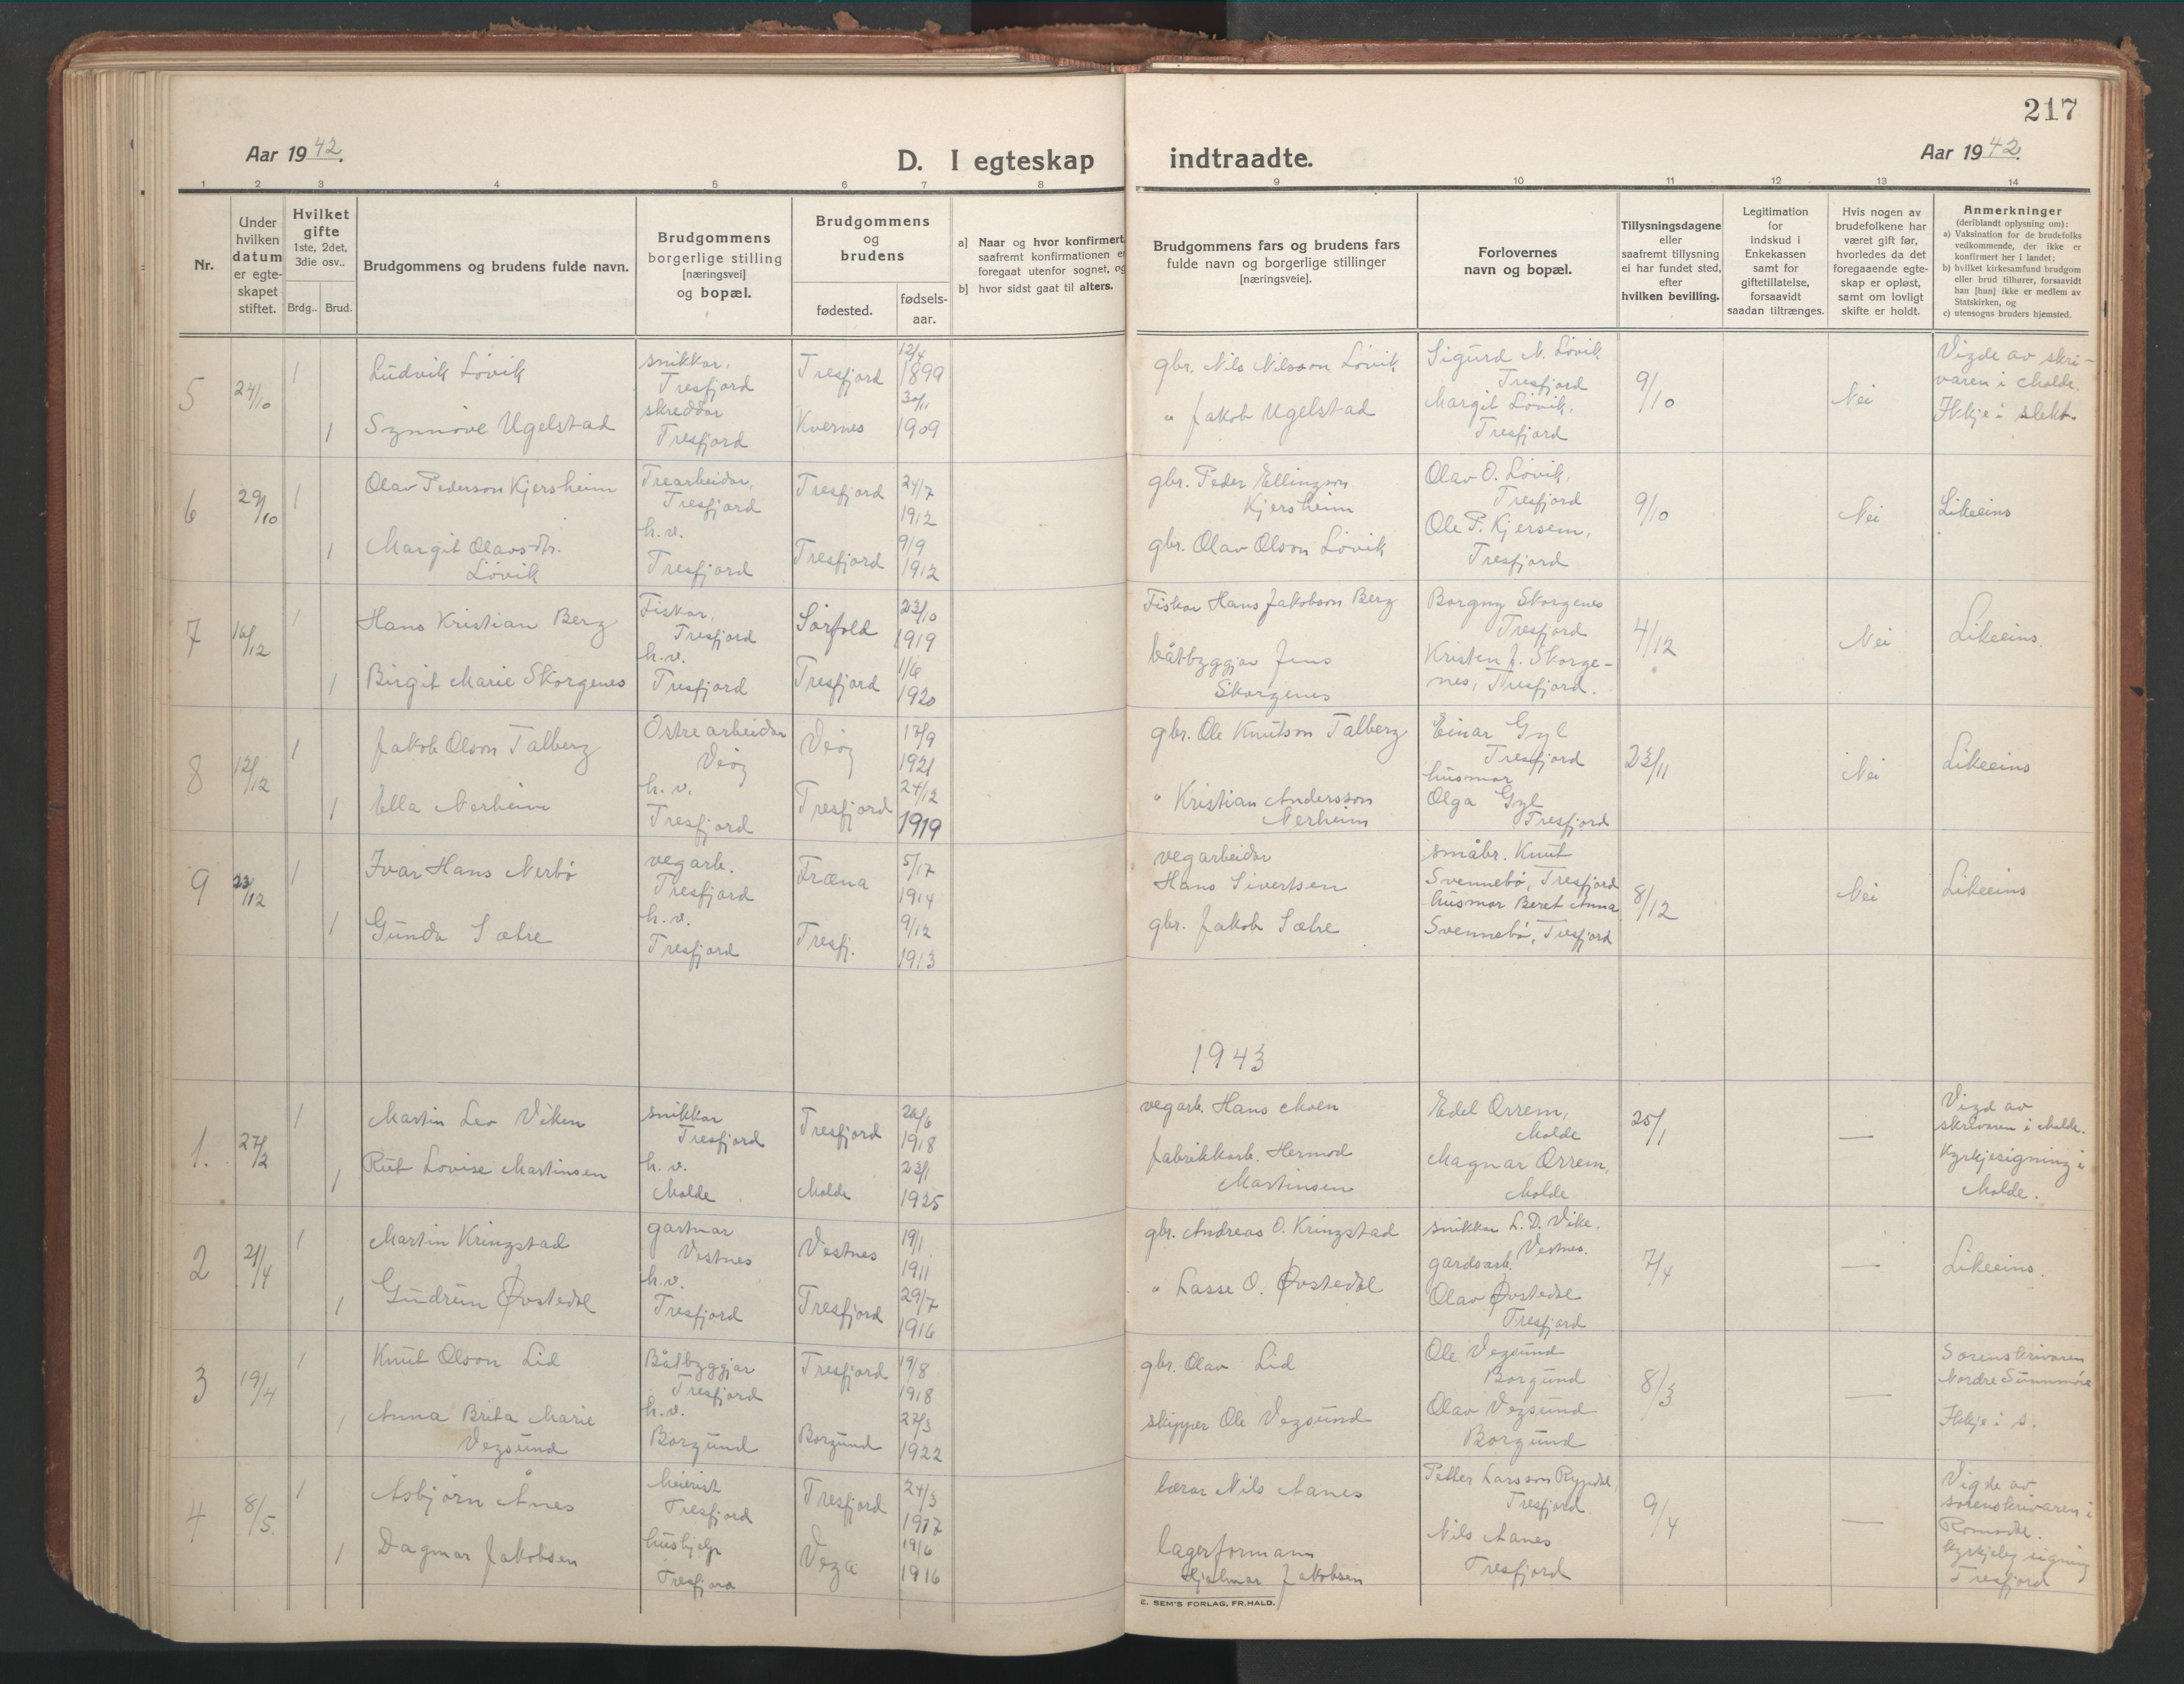 217
Aar 1942.
D. I egteskap indtraadte.
Aar 1942.
1 2 3 4 5 6 7 8 9 10 11 12 13 14
Nr.
Under hvilken datum er egteskapet stiftet.
Hvilket gifte 1ste, 2det, 3die osv..
Brdg.. Brud.
Brudgommens og brudens fulde navn.
Brudgommens borgerlige stilling [næringsvei] og bopæl.
Brudgommens og brudens
fødested.
fødsels-aar.
a] Naar og hvor konfirmert, saafremt konfirmationen er foregaat utenfor sognet, og
b] hvor sidst gaat til alters.
Brudgommens fars og brudens fars fulde navn og borgerlige stillinger [næringsveie].
Forlovernes navn og bopæl.
Tillysningsdagene eller saafremt tillysning ei har fundet sted, efter hvilken bevilling.
Legitimation for indskud i Enkekassen samt for giftetillatelse, forsaavidt saadan tiltrænges.
Hvis nogen av brudefolkene har været gift før, hvorledes da det foregaaende egteskap er opløst, samt om lovligt skifte er holdt.
Anmerkninger (deriblandt oplysning om):
a) Vaksination for de brudefolks vedkommende, der ikke er konfirmert her i landet;
b) hvilket kirkesamfund brudgom eller brud tilhører, forsaavidt han [hun] ikke er medlem av Statskirken, og
c) utensogns bruders hjemsted.
5 24/10 1 Ludvik Lövik snikkar, Tresfjord Tresfjord 12/4 1899 gbr. Nils Nilsson Lövik Sigurd N. Lövik Tresfjord 9/10 Nei Vigde av skrivaren i Molde. Ikkje i slekt.
1 Synnöve Ugelstad skreddar Tresfjord Kvernes 30/11 1909 " Jakob Ugelstad Margit Lövik, Tresfjord
6 29/10 1 Olav Pederson Kjersheim Trearbeidar, Tresfjord Tresfjord 24/7 1912 gbr. Peder Ellingson Kjersheim Olav O. Lövik, Tresfjord 9/10 Nei Likeeins
1 Margit Olavsdtr. Lövik h.v. Tresfjord Tresfjord 9/9 1912 gbr. Olav Olson Lövik Ole P. Kjersem, Tresfjord
7 16/12 1 Hans Kristian Berg Fiskar, Tresfjord Sörfold 23/10 1919 Fiskar Hans Jakobson Berg Borgny Skorgenes Tresfjord 4/12 Nei Likeeins.
1 Birgit Marie Skorgenes h.v. Tresfjord Tresfjord 1/6 1920 båtbyggjar Jens Skorgenes Kristen J. Skorgenes, Tresfjord.
8 12/12 1 Jakob Olson Talberg Östrearbeidar Veöy Veöy 17/9 1921 gbr. Ole Knutson Talberg Einar Gyl Tresfjord 23/11 Nei Likeeins
1 Ella Nerheim h.v. Tresfjord Tresfjord 24/12 1919 " Kristian Andersson Nerheim husmor Olga Gyl Tresfjord
9 23/12 1 Ivar Hans Nerbö vegarb. Tresfjord Fræna 5/17 1914 vegarbeidar Hans Sivertsen småbr. Knut Svennebö, Tresfjord 8/12 Nei Likeeins
1 Gunda Sætre h.v. Tresfjord Tresfj. 9/12 1913 gbr. Jakob Sætre husmor Beret Anna Svennebö, Tresfjord
1943
1. 27/2 1 Martin Leo Viken snikkar Tresfjord Tresfjord 26/6 1918 vegarb. Hans Moen Edel Orrem, Molde 25/1 — Vigd av skrivaren i Molde. Kyrkjesigning i Molde.
1 Rut Lovise Martinsen h.v. Molde Molde 23/1 1925 fabrikkarb. Hermod Martinsen Magnar Orrem, Molde
2 21/4 1 Martin Kringstad gartnar Vestnes Vestnes 19/1 1911 gbr. Andreas O. Kringstad snikkar L. D. Vike, Vestnes. 7/4 — Likeeins.
1 Gudrun Øvstedal h.v. Tresfjord Tresfjord 29/7 1916 " Lasse O. Øvstedal gardsarb. Olav Øvstedal Tresfjord
3 19/4 1 Knut Olson Lid Båtbyggjar Tresfjord Tresfjord 19/8 1918 gbr. Olav Lid Ole Vegsund Borgund 8/3 — Sorenskrivaren Nordre Sunnmöre Ikkje i s.
1 Anna Brita Marie Vegsund h.v. Borgund Borgund 27/3 1922 skipper Ole Vegsund Olav Vegsund Borgund
4 8/5. 1 Asbjörn Ånes meierist Tresfjord Tresfjord 24/3 1917 lærar Nils Aanes Petter Larsson Rypdal, Tresfjord 9/4 — Vigde av sorenskrivaren i Romsdal. Kyrkjeleg signing Tresfjord
1 Dagmar Jakobsen hushjelp Tresfjord Vega 19/6 1916 lagerformann Hjalmar Jakobsen Nils Aanes Tresfjord
E. SEM'S FORLAG, FR.HALD.